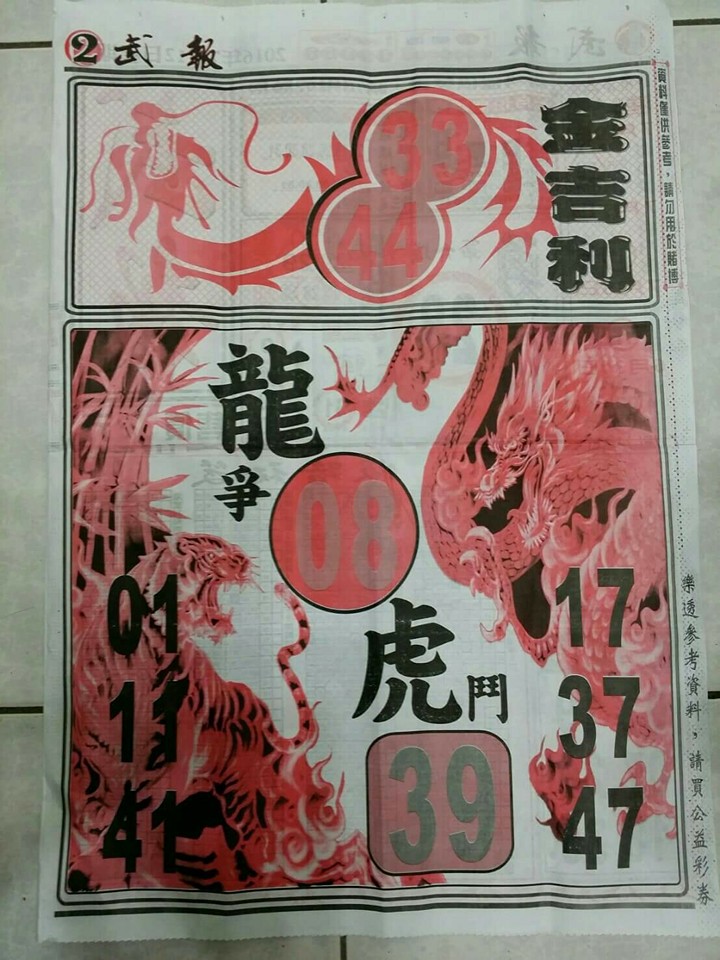 2 武報
33
44
金吉利
資料僅供參考，請勿用於賭博
龍爭
08
虎鬥
39
01
11
41
17
37
47
樂透參考資料，請買公益彩券